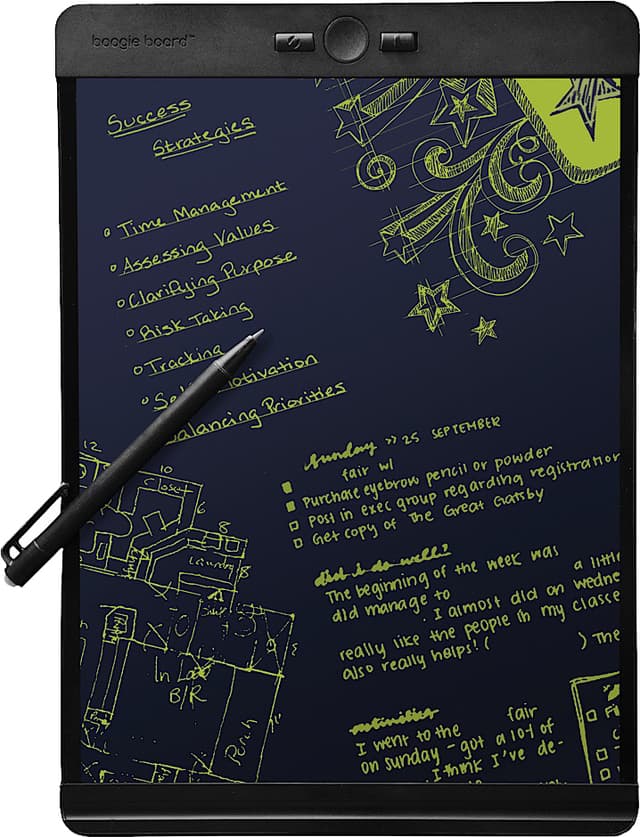 boogie board™
Success
Strategies
Time Management
Assessing Values
Clarifying Purpose
Risk Taking
Tracking
Motivation
Balancing Priorities
Sunday >> 25 SEPTEMBER
fair w/
Purchase eyebrow pencil or powder
Post in exec group regarding registration
Get copy of The Great Gatsby
did i do well?
The beginning of the week was a little
did manage to
. I almost did on wedne
really like the people in my classe
also really helps! ( ) The
I went to the fair
on sunday - got a lot of
I think I've de-
12
10
Closet
6
8
Laundry
8
In Law
B/R
Porch